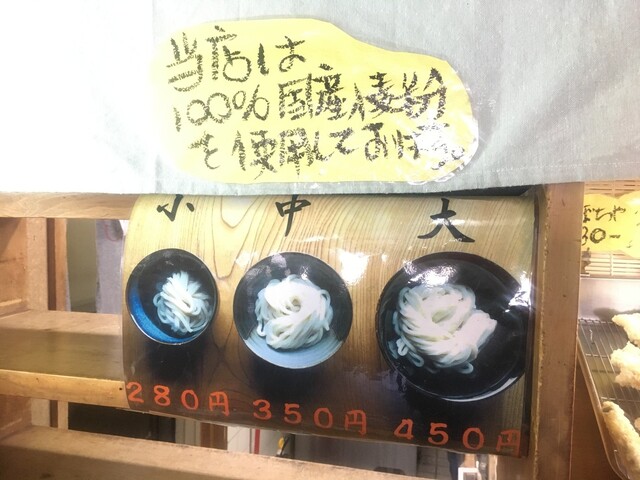 当店は
100%国産小麦粉
を使用しております。
小 中 大
280円 350円 450円